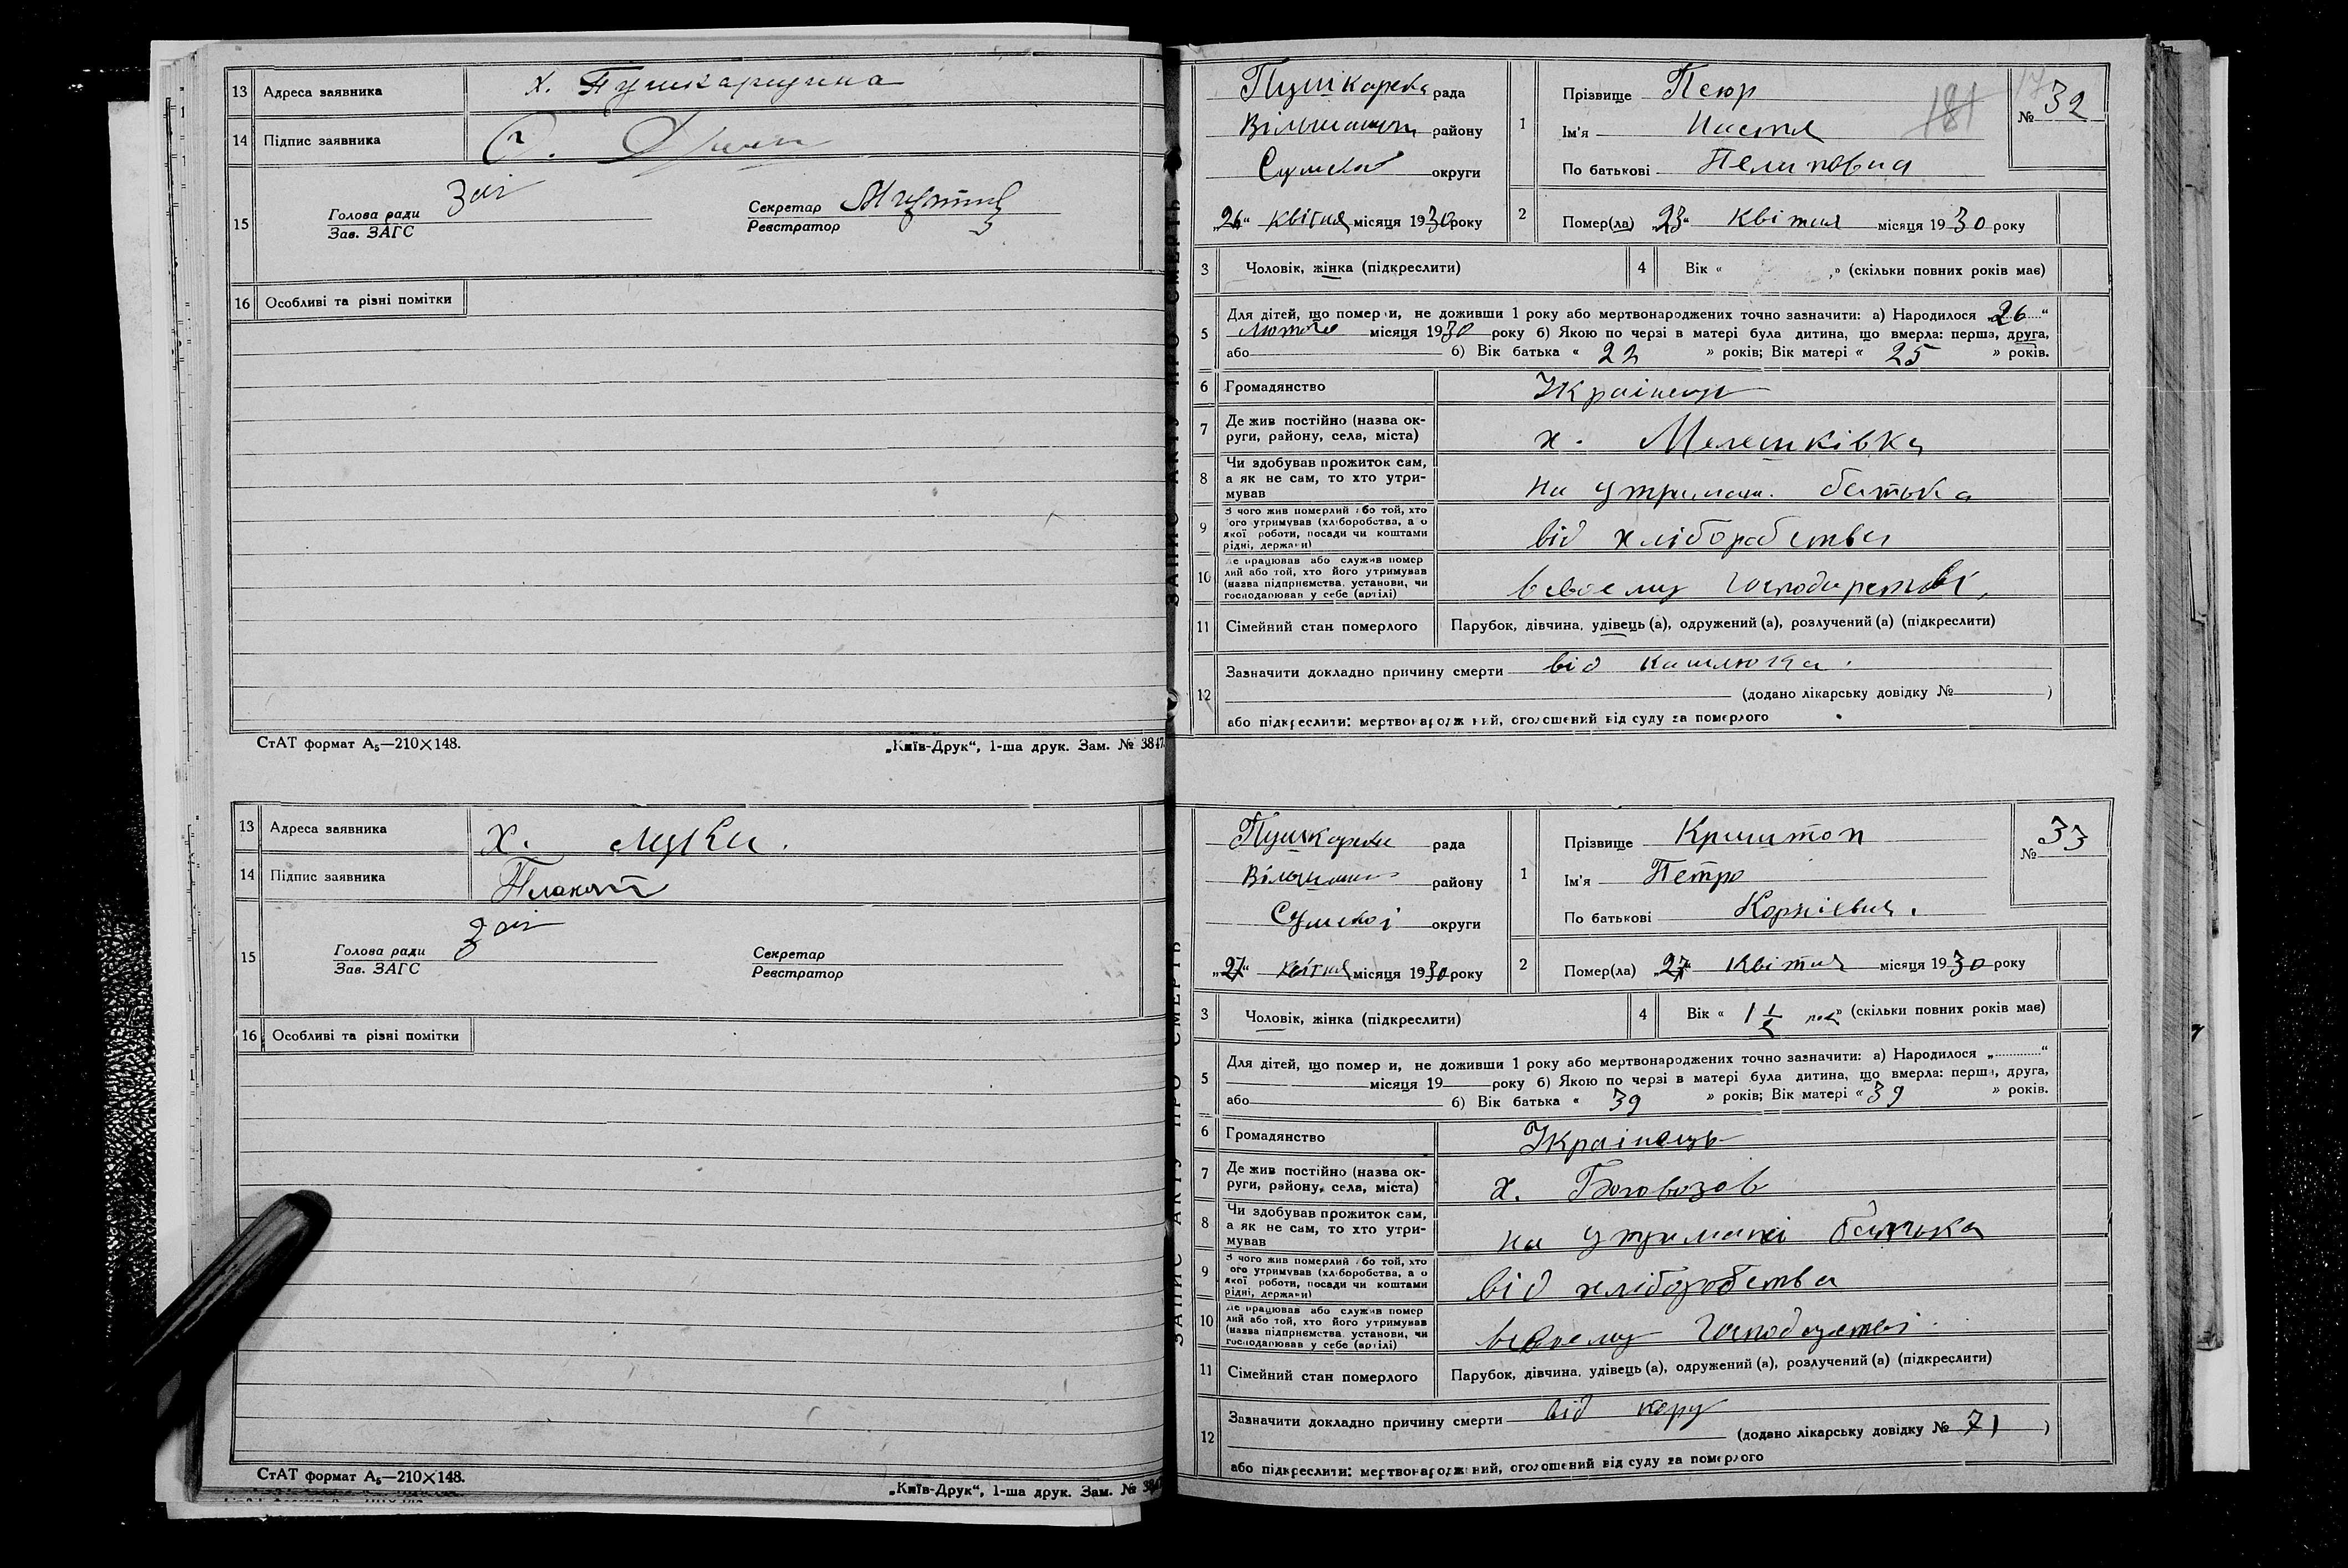 13 Адреса заявника х. Пушкарщина
14 Підпис заявника
15 Голова ради Заг Секретар
Зав. ЗАГС Реєстратор
16 Особливі та різні помітки
СтАТ формат А₅—210×148. „Київ-Друк“, 1-ша друк. Зам. № 3847
13 Адреса заявника х. Луки.
14 Підпис заявника
15 Голова ради Заг Секретар
Зав. ЗАГС Реєстратор
16 Особливі та різні помітки
СтАТ формат А₅—210×148.
„Київ-Друк“, 1-ша друк. Зам. № 3847
ЗАПИС АКТУ ПРО СМЕРТЬ
Пушкарська рада
району
Сумської округи
„26“ квітня місяця 1930 року
1 Прізвище
Ім'я Настя
По батькові
181
№ 32
2 Помер(ла) „23“ Квітня місяця 1930 року
3 Чоловік, жінка (підкреслити) 4 Вік « » (скільки повних років має)
5 Для дітей, що померли, не доживши 1 року або мертвонароджених точно зазначити: а) Народилося „26“
Лютого місяця 1930 року б) Якою по черзі в матері була дитина, що вмерла: перша, друга,
або б) Вік батька « 22 » років; Вік матері « 25 » років.
6 Громадянство Українец
7 Де жив постійно (назва ок-
руги, району, села, міста) х. Мелешківка
8 Чи здобував прожиток сам,
а як не сам, то хто утри-
мував на утриман. батька
9 З чого жив померлий або той, хто
його утримував (хліборобства, а о
якої роботи, посади чи коштами
рідні, держави) від хліборобства
10 Де працював або служив помер
лий або той, хто його утримував
(назва підприємства, установи, чи
господарював у себе (артілі) в своему господарстві,
11 Сімейний стан померлого Парубок, дівчина, удівець (а), одружений (а), розлучений (а) (підкреслити)
12 Зазначити докладно причину смерти від кашлюка.
(додано лікарську довідку № )
або підкреслити: мертвонароджений, оголошений від суду за померлого
ЗАПИС АКТУ ПРО СМЕРТЬ
Пушкарська рада
району
Сумскоі округи
„27“ квітня місяця 1930 року
1 Прізвище Криштоп
Ім'я Петро
По батькові Корнієвич.
№ 33
2 Помер(ла) „27“ Квітня місяця 1930 року
3 Чоловік, жінка (підкреслити) 4 Вік « 1 ½ рок» (скільки повних років має)
5 Для дітей, що померли, не доживши 1 року або мертвонароджених точно зазначити: а) Народилося „ “
місяця 19 року б) Якою по черзі в матері була дитина, що вмерла: перша, друга,
або б) Вік батька « 39 » років; Вік матері « 39 » років.
6 Громадянство Українець
7 Де жив постійно (назва ок-
руги, району, села, міста) х. Боговозов
8 Чи здобував прожиток сам,
а як не сам, то хто утри-
мував на утримані батька
9 З чого жив померлий або той, хто
його утримував (хліборобства, а о
якої роботи, посади чи коштами
рідні, держави) від хліборобства
10 Де працював або служив помер
лий або той, хто його утримував
(назва підприємства, установи, чи
господарював у себе (артілі) в своему
11 Сімейний стан померлого Парубок, дівчина, удівець (а), одружений (а), розлучений (а) (підкреслити)
12 Зазначити докладно причину смерти від кору
(додано лікарську довідку № 71 )
або підкреслити: мертвонароджений, оголошений від суду за померлого